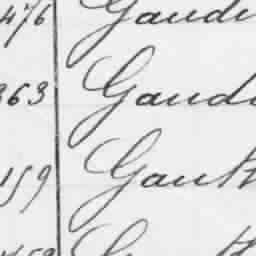 476 Gaudi
363 Gaud
159 Gauth